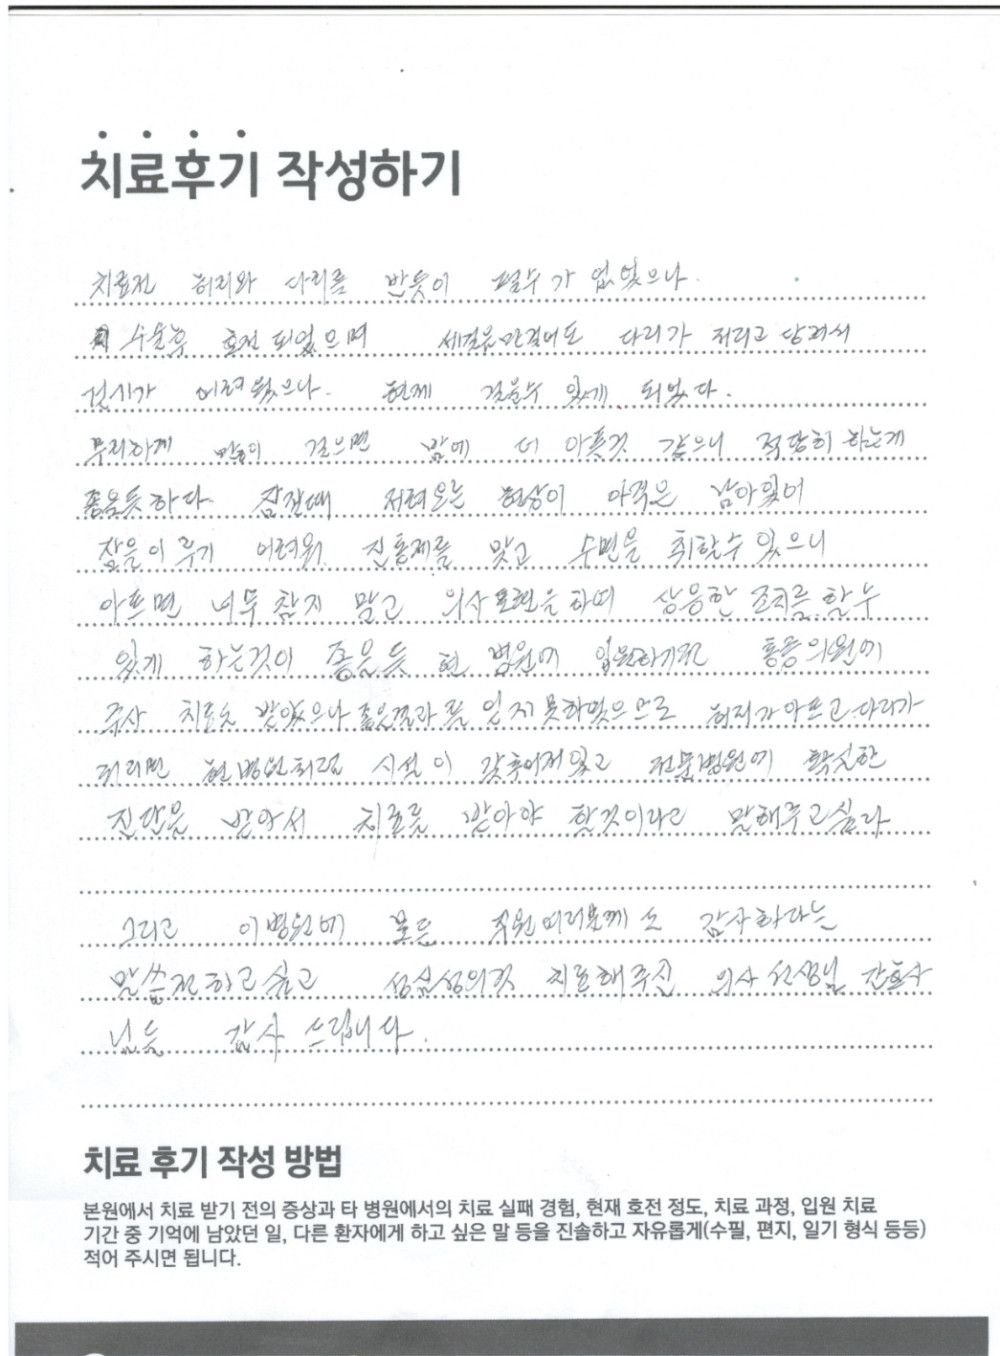 치료후기 작성하기
치료전 허리와 다리를 반듯이 펼수가 없었으나.
수술후 호전되었으며 세걸음만걸어도 다리가 저리고 당겨서
걷기가 어려웠으나. 현재 걸을수 있게 되었다.
무리하게 많이 걸으면 밤에 더 아픈것 같으니 적당히 하는게
좋은듯하다. 잠잘때 저려오는 현상이 아직은 남아있어
잠을이루기 어려워 진통제를 맞고 수면을 취할수 있으니
아프면 너무 참지 말고 의사표현을하여 상응한 조치를 할수
있게 하는것이 좋은듯 현 병원에 입원하기전 통증의원에
주사 치료도 받았으나 좋은결과를 얻지못하였으므로 허리가아프고 다리가
저리면 현병원처럼 시설이 갖추어져있고 전문병원에 확실한
진단을 받아서 치료를 받아야 할것이라고 말해주고싶다
그리고 이병원에 모든 직원여러분께도 감사하다는
말씀전하고싶고 성심성의것 치료해주신 의사선생님 간호사
님들 감사 드립니다.
치료 후기 작성 방법
본원에서 치료 받기 전의 증상과 타 병원에서의 치료 실패 경험, 현재 호전 정도, 치료 과정, 입원 치료
기간 중 기억에 남았던 일, 다른 환자에게 하고 싶은 말 등을 진솔하고 자유롭게(수필, 편지, 일기 형식 등등)
적어 주시면 됩니다.